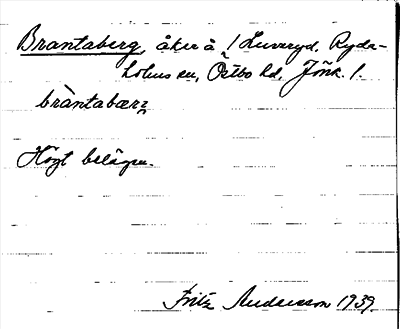 Brantaberg, åker å 1 Luveryd, Ryda-
holms sn, Östbo hd, Jönk. l.
bràntabærʒ
Högt belägen.
Fritz Andersson 1939.